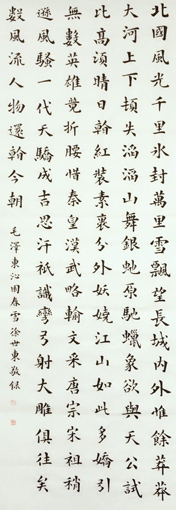 北國風光千里冰封萬里雪飄望長城內外惟餘莽莽
大河上下頓失滔滔山舞銀蛇原馳蠟象欲與天公試
比高須晴日看紅裝素裹分外妖嬈江山如此多嬌引
無數英雄競折腰惜秦皇漢武略輸文采唐宗宋祖稍
遜風騷一代天驕成吉思汗祇識彎弓射大雕俱往矣
數風流人物還看今朝 毛澤東沁園春雪 徐世東敬錄